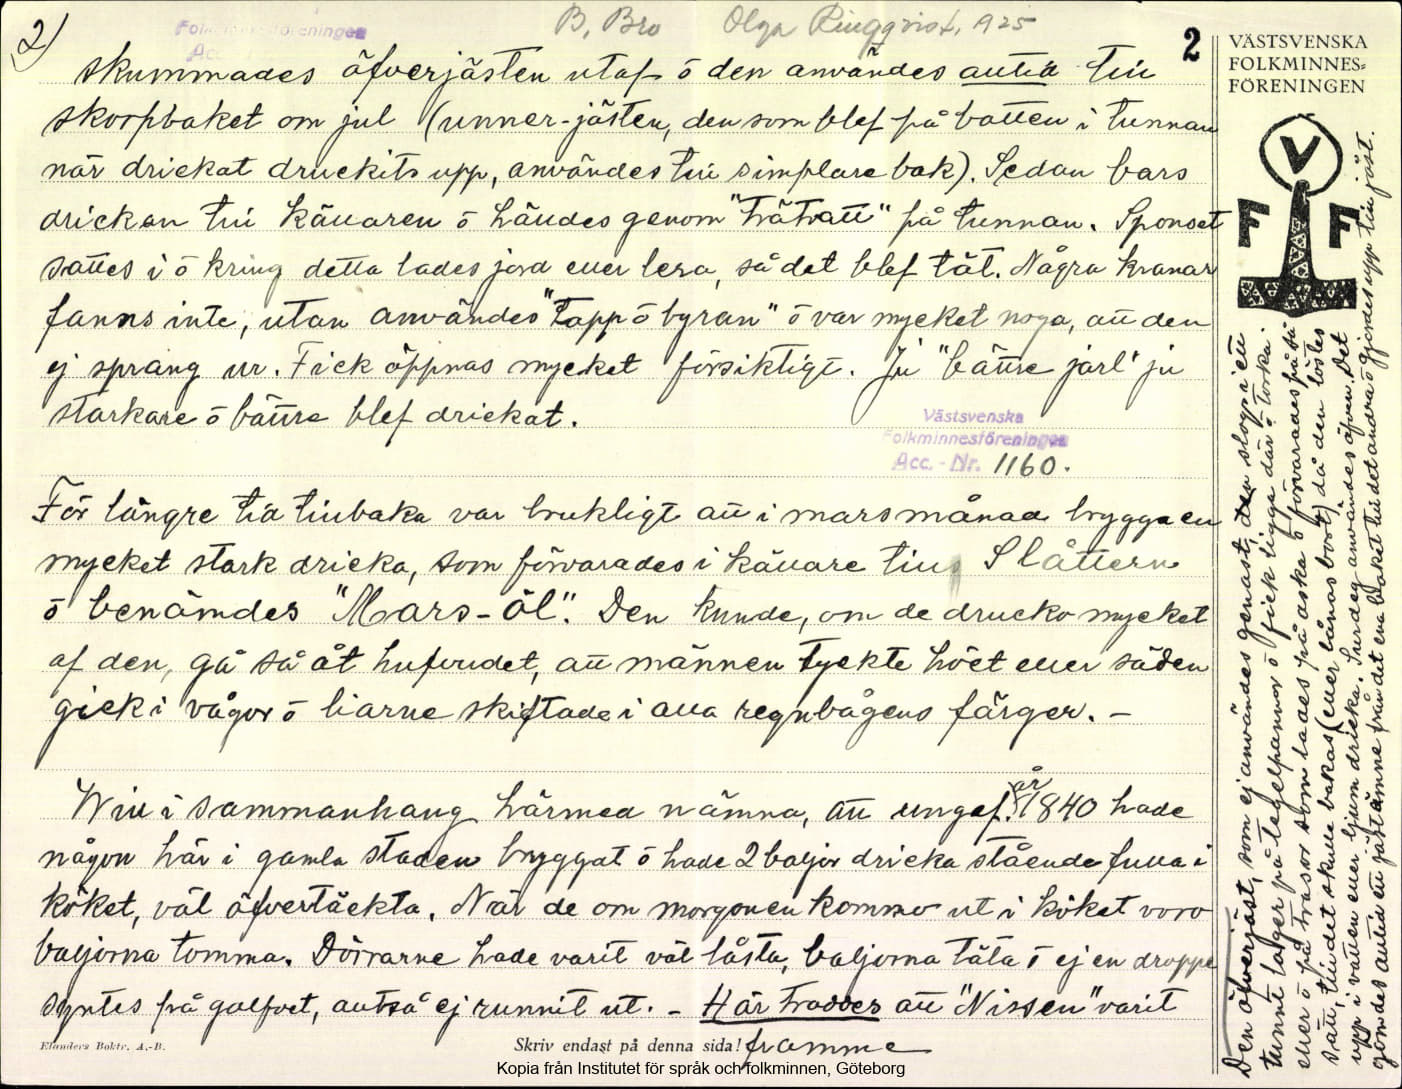 2)
Folkminnesföreningen
Acc
B, Bro Olga Ringqvist, 1925
2
VÄSTSVENSKA
FOLKMINNES=
FÖRENINGEN
V
F F
skummades öfverjästen utaf ō den användes alltid till
skorpbaket om jul (unner-jästen, den som blef på botten i tunnan
när drickat druckits upp, användes till simplare bak). Sedan bars
drickan till källaren ō hälldes genom "träratt" på tunnan. Sponset
sattes i ō kring detta lades jord eller lera, så det blef tät. Några kranar
fanns inte, utan användes "tapp ō byran" ō var mycket noga, att den
ej sprang ur. Fick öppnas mycket försiktigt. Ju "bättre järl" ju
starkare ō bättre blef drickat.
Västsvenska
Folkminnesföreningen
Acc. - Nr. 1160.
För längre tid tillbaka var brukligt att i mars månad brygga en
mycket stark dricka, som förvarades i källare till Slåttern
ō benämdes "Mars-öl". Den kunde, om de drucko mycket
af den, gå så åt hufvudet, att männen tyckte höet eller säden
gick i vågor ō liarne skiftade i alla regnbågens färger. -
Will i sammanhang härmed nämna, att ungef. år 1840 hade
någon här i gamla staden bryggat ō hade 2 baljor dricka stående fulla i
köket, väl öfvertäckta. När de om morgonen kommo ut i köket voro
baljorna tomma. Dörrarne hade varit väl låsta, baljorna täta ō ej en droppe
syntes på golfvet, alltså ej runnit ut. - Här troddes att "Nissen" varit
framme
Elanders Boktr. A.-B.
Skriv endast på denna sida!
Den öfverjäst, som ej användes genast, den slogs i ett
tunnt lager på tegelpannor ō fick ligga där ō torka.
eller ō på trasor som lades på aska ō förvarades på så
sätt, till det skulle bakas (eller lånas bort) då den löstes
upp i vatten eller ljum dricka. Surdeg användes äfven. Det
gömdes alltid ett jästämne från det ena baket till det andra ō gjordes upp till jäst.
Kopia från Institutet för språk och folkminnen, Göteborg